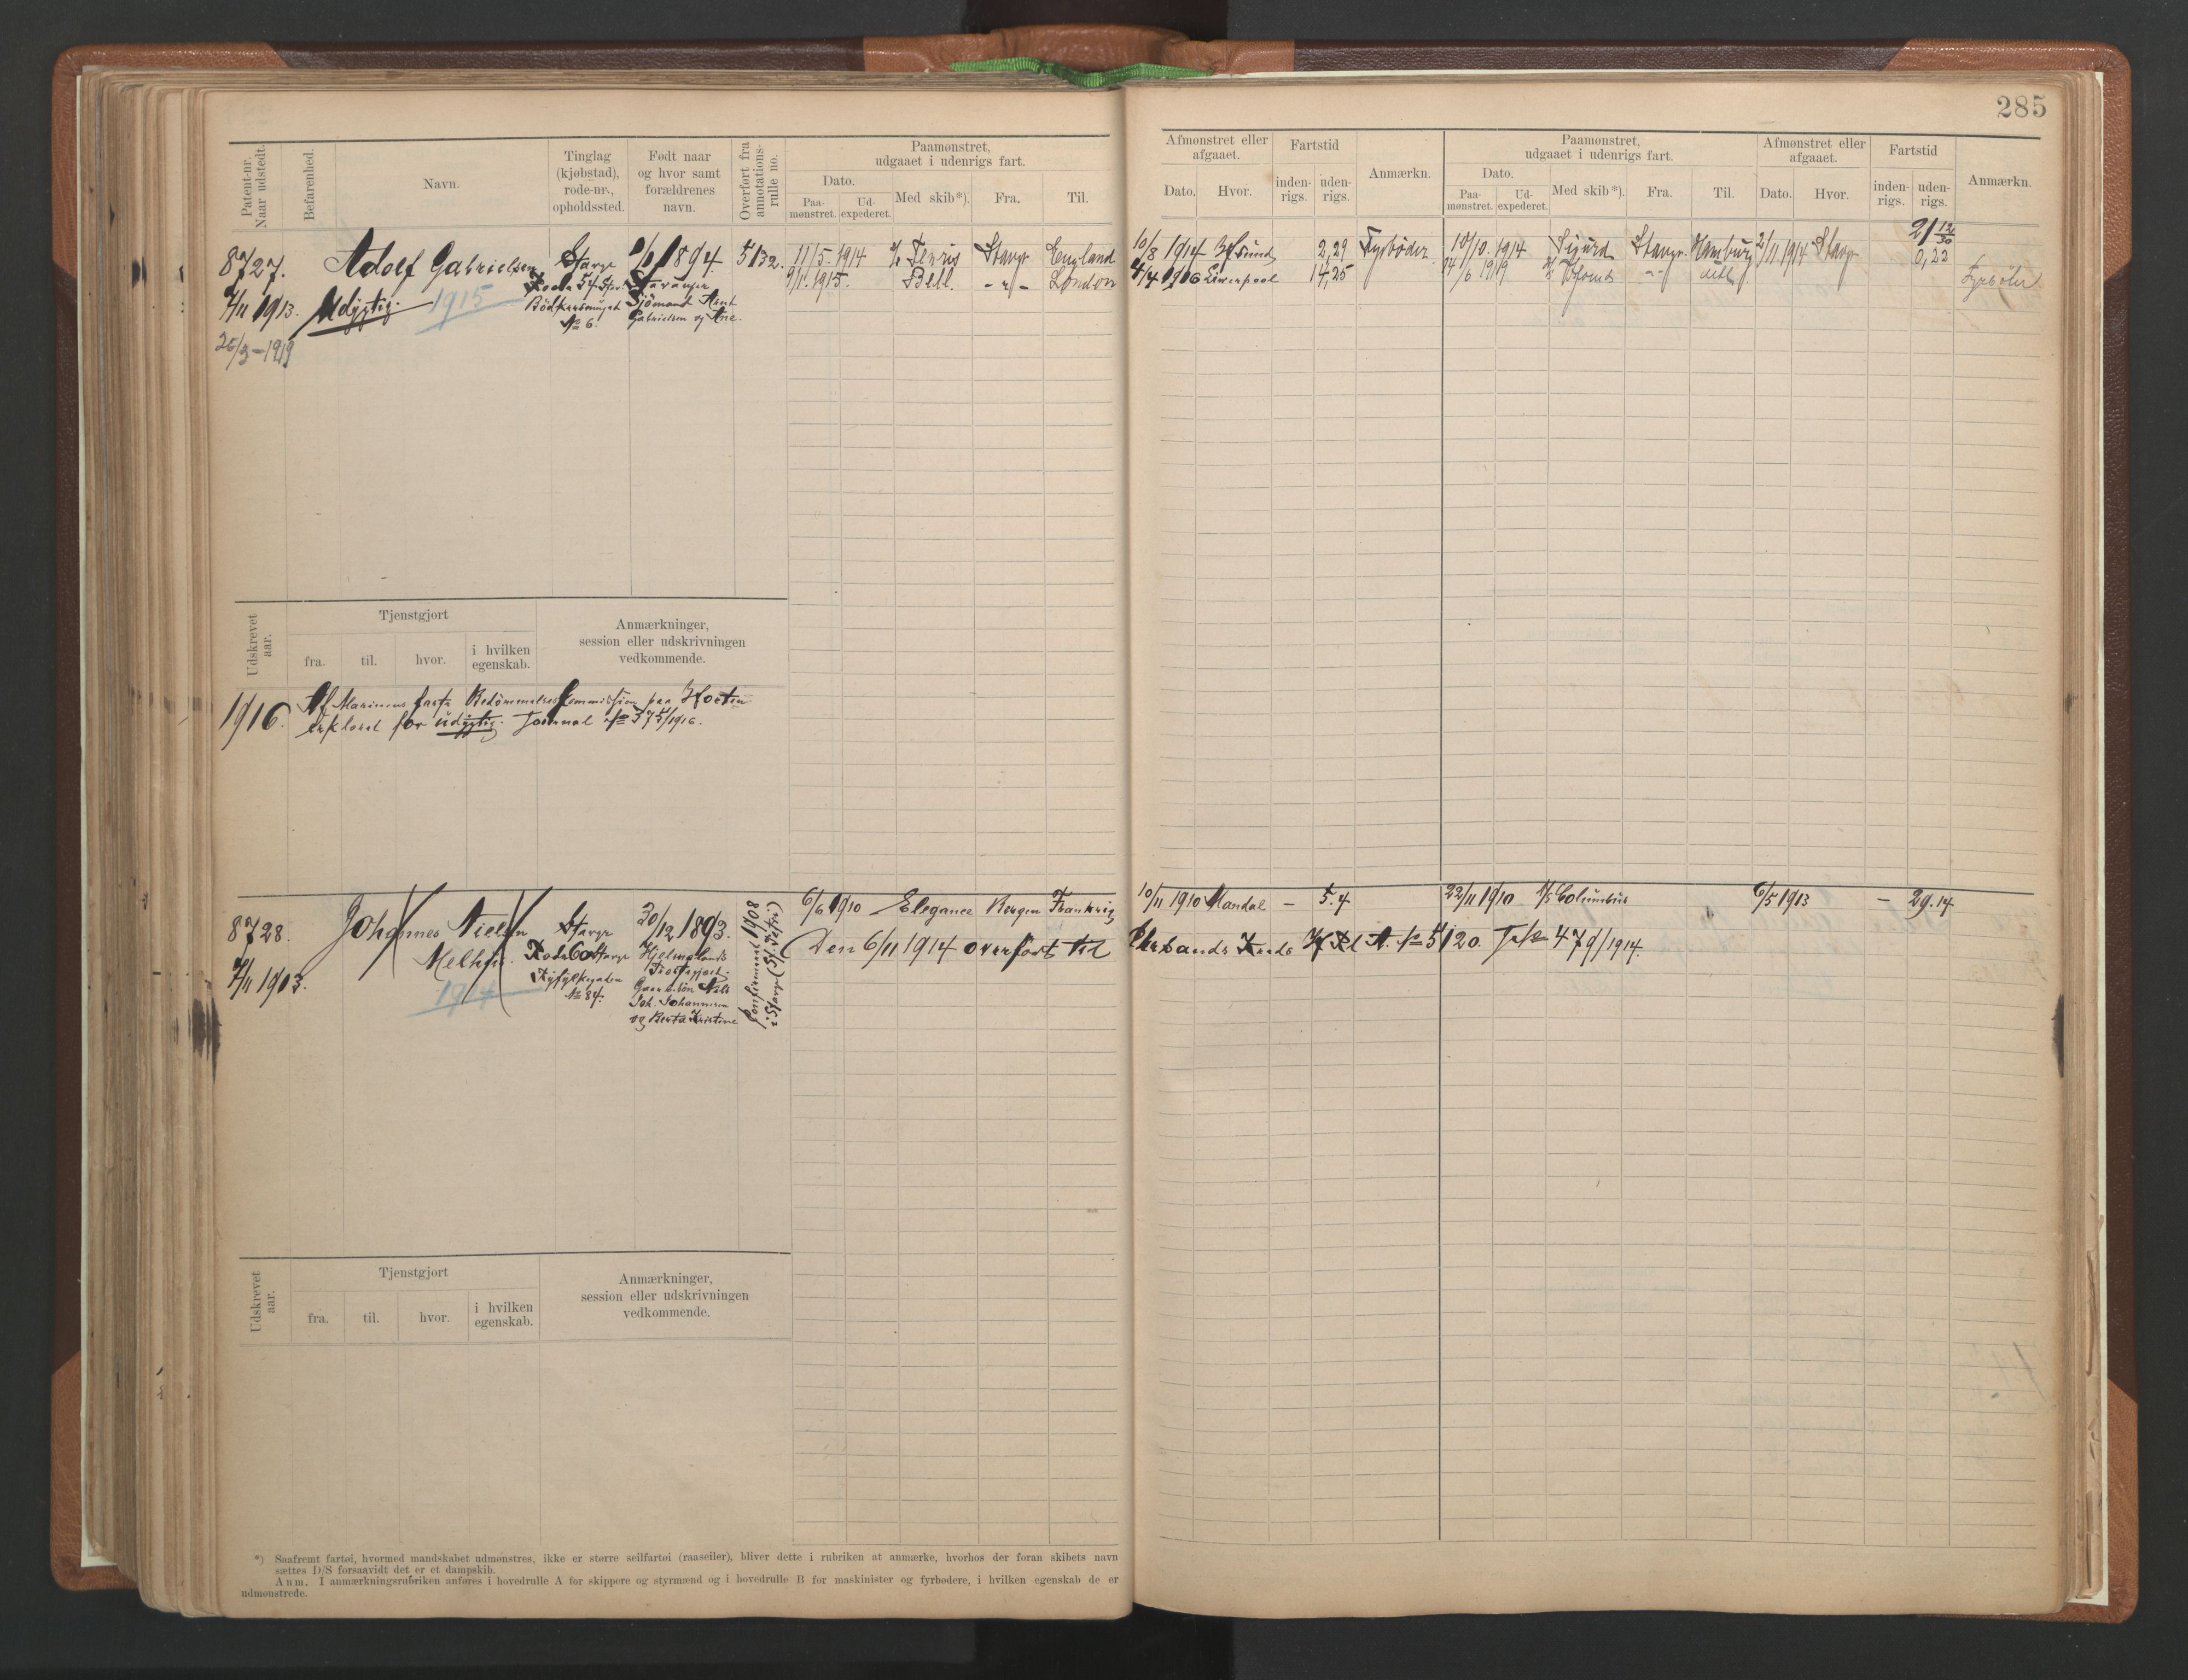 285
Patent-nr. Naar udstedt.
Befarenhed.
Navn.
Tinglag (kjøbstad), rode-nr., opholdssted.
Født naar og hvor samt forældrenes navn.
Overført fra annotations-rulle no.
Paamønstret, udgaaet i udenrigs fart.
Dato.
Paa-mønstret.
Ud-expederet.
Med skib*).
Fra.
Til.
Afmønstret eller afgaaet.
Dato.
Hvor.
Fartstid
inden-rigs.
uden-rigs.
Anmærkn.
Paamønstret, udgaaet i udenrigs fart.
Dato.
Paa-mønstret.
Ud-expederet.
Med skib*).
Fra.
Til.
Afmønstret eller afgaaet.
Dato.
Hvor.
Fartstid
inden-rigs.
uden-rigs.
Anmærkn.
8727.
7/11 1913.
26/3-1919
Adolf Gabrielsen
Udygtig 1915
Stavgr
Rode 54 Stvr
Bødkersmuget
№ 6.
1894
Stavanger
Sjömand Arnt
Gabrielsen og Ane.
5132.
11/5. 1914
Stavgr
England
9/11. 1915.
Bell.
- " -
London
10/8 1914
Hfsund
2,29
Fyrbøder
4/4 1916 Liverpool
14,25
10/10. 1914
Sigurd
Stavgr.
Hamburg
2/11 1914
Stavgr
21 12/30
0,22
1919
Fyrbøder
Udskrevet aar.
Tjenstgjort
fra.
til.
hvor.
i hvilken egenskab.
Anmærkninger, session eller udskrivningen vedkommende.
1916.
Af Marinens faste Bedömmelseskommission paa Horten
erklæret for udygtig. Journal № 375/1916.
8728.
7/11 1913.
Johannes Nielsen
Melhus.
1914
Stavgr
Rode 60 Stavgr
Ryfylkegaden
№ 84.
20/12 1893.
Hjelmelands
Præstegjæld.
Gaardbr. sön Nils
Joh. Johannesen
og Berta Kristine
Confirmeret 1908
i Stavgr (St. Petri)
6/6 1910
Elegance
Bergen
Frankrig
10/11 1910
Mandal
-
5.4
22/11 1910
Columbus
6/5 1913
-
29.14
Den 6/11 1914 overført til
Chrsands Kreds Hf Rl A. № 5120. J № 479/1914.
Udskrevet aar.
Tjenstgjort
fra.
til.
hvor.
i hvilken egenskab.
Anmærkninger, session eller udskrivningen vedkommende.
*) Saafremt fartøi, hvormed mandskabet udmønstres, ikke er større seilfartøi (raaseiler), bliver dette i rubriken at anmærke, hvorhos der foran skibets navn
sættes D/S forsaavidt det er et dampskib.
Anm. I anmærkningsrubriken anføres i hovedrulle A for skippere og styrmænd og i hovedrulle B for maskinister og fyrbødere, i hvilken egenskab de er
udmønstrede.